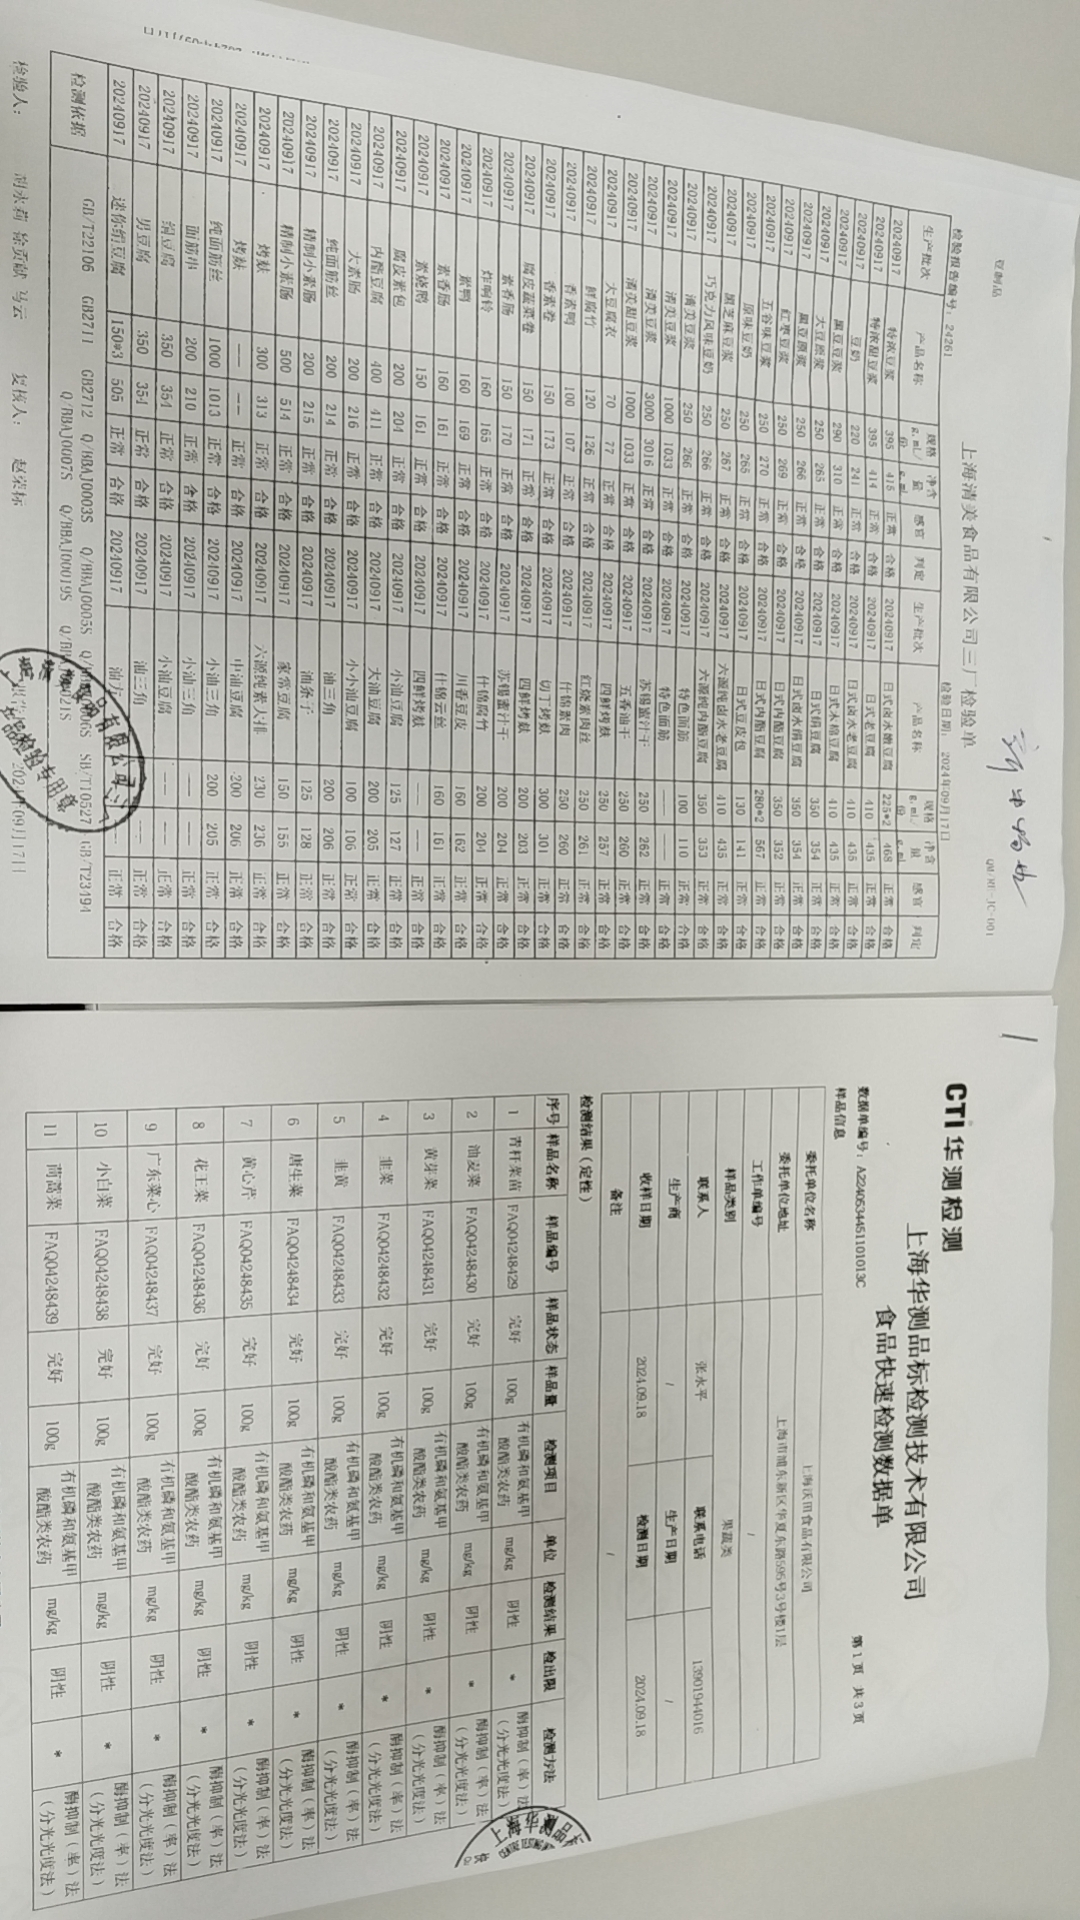 豆制品
QM/XF-JC-001
上海清美食品有限公司三厂检验单
检验报告编号：24261 检验日期：2024年09月17日
生产批次 产品名称 规格g,mL/份 净含量g,mL 感官 判定 生产批次 产品名称 规格g,mL/份 净含量g,mL 感官 判定
20240917 特浓豆浆 395 415 正常 合格 20240917 日式卤水嫩豆腐 225*2 468 正常 合格
20240917 特浓甜豆浆 395 414 正常 合格 20240917 日式老豆腐 410 435 正常 合格
20240917 豆奶 220 241 正常 合格 20240917 日式卤水老豆腐 410 435 正常 合格
20240917 黑豆豆浆 290 310 正常 合格 20240917 日式木棉豆腐 410 435 正常 合格
20240917 大豆原浆 250 265 正常 合格 20240917 日式绢豆腐 350 354 正常 合格
20240917 黑豆原浆 250 266 正常 合格 20240917 日式卤水绢豆腐 350 354 正常 合格
20240917 红枣豆浆 250 269 正常 合格 20240917 日式内酯豆腐 350 352 正常 合格
20240917 五谷味豆浆 250 270 正常 合格 20240917 日式内酯豆腐 280*2 567 正常 合格
20240917 原味豆奶 250 265 正常 合格 20240917 日式豆皮包 130 141 正常 合格
20240917 黑芝麻豆浆 250 267 正常 合格 20240917 六源纯卤水老豆腐 410 435 正常 合格
20240917 巧克力风味豆奶 250 266 正常 合格 20240917 六源纯内酯豆腐 350 353 正常 合格
20240917 清美豆浆 250 266 正常 合格 20240917 特色面筋 100 110 正常 合格
20240917 清美豆浆 1000 1033 正常 合格 20240917 特色面筋 — — 正常 合格
20240917 清美豆浆 3000 3016 正常 合格 20240917 苏锡蜜汁干 250 262 正常 合格
20240917 清美甜豆浆 1000 1033 正常 合格 20240917 五香油干 250 260 正常 合格
20240917 大豆腐衣 70 77 正常 合格 20240917 四鲜烤麸 250 257 正常 合格
20240917 鲜腐竹 120 126 正常 合格 20240917 红烧素肉丝 250 261 正常 合格
20240917 香素鸭 100 107 正常 合格 20240917 什锦素肉 250 260 正常 合格
20240917 香素卷 150 173 正常 合格 20240917 切丁烤麸 300 301 正常 合格
20240917 腐皮蔬菜卷 150 171 正常 合格 20240917 四鲜烤麸 200 203 正常 合格
20240917 素香肠 150 170 正常 合格 20240917 苏锡蜜汁干 200 204 正常 合格
20240917 炸响铃 160 165 正常 合格 20240917 什锦腐竹 200 204 正常 合格
20240917 素鸭 160 169 正常 合格 20240917 川香豆皮 160 162 正常 合格
20240917 素香肠 160 161 正常 合格 20240917 什锦云丝 160 161 正常 合格
20240917 素烧鹅 150 161 正常 合格 20240917 四鲜烤麸 — — 正常 合格
20240917 腐皮素包 200 204 正常 合格 20240917 小油豆腐 125 127 正常 合格
20240917 内酯豆腐 400 411 正常 合格 20240917 大油豆腐 200 205 正常 合格
20240917 大素肠 200 216 正常 合格 20240917 小小油豆腐 100 106 正常 合格
20240917 纯面筋丝 200 214 正常 合格 20240917 油三角 200 206 正常 合格
20240917 精制小素肠 200 215 正常 合格 20240917 油条子 125 128 正常 合格
20240917 精制小素肠 500 514 正常 合格 20240917 家常豆腐 150 155 正常 合格
20240917 烤麸 300 313 正常 合格 20240917 六源纯素大排 230 236 正常 合格
20240917 烤麸 — — 正常 合格 20240917 中油豆腐 200 206 正常 合格
20240917 纯面筋丝 1000 1013 正常 合格 20240917 小油三角 200 205 正常 合格
20240917 面筋 200 210 正常 合格 20240917 小油三角 — — 正常 合格
20240917 绢豆腐 350 354 正常 合格 20240917 小油豆腐 — — 正常 合格
20240917 男豆腐 350 354 正常 合格 20240917 油三角 — — 正常 合格
20240917 迷你绢豆腐 150*3 505 正常 合格 20240917 油方 — 正常 合格
检测依据 GB/T22106 GB2711 GB2712 Q/BBAJ0003S Q/BBAJ0005S SB/T10527 GB/T23494
Q/BBAJ0007S Q/BBAJ0019S
检验人： 胡永莉 徐贡献 马云 复核人： 赵荣标 2024年09月17日
CTI华测检测
上海华测品标检测技术有限公司
食品快速检测数据单
数据单编号：A2240534451101013C 第1页 共3页
样品信息
委托单位名称 上海沃田食品有限公司
委托单位地址 上海市浦东新区华夏东路595号3号楼1层
工作单编号 /
样品类别 果蔬类
联系人 张水平 联系电话 13901944016
生产商 / 生产日期 /
收样日期 2024.09.18 检测日期 2024.09.18
备注 /
检测结果（定性）
序号 样品名称 样品编号 样品状态 样品量 检测项目 单位 检测结果 检出限 检测方法
1 青秆菜苗 FAQ04248429 完好 100g 有机磷和氨基甲酸酯类农药 mg/kg 阴性 * 酶抑制（率）法（分光光度法）
2 油麦菜 FAQ04248430 完好 100g 有机磷和氨基甲酸酯类农药 mg/kg 阴性 * 酶抑制（率）法（分光光度法）
3 黄芽菜 FAQ04248431 完好 100g 有机磷和氨基甲酸酯类农药 mg/kg 阴性 * 酶抑制（率）法（分光光度法）
4 韭菜 FAQ04248432 完好 100g 有机磷和氨基甲酸酯类农药 mg/kg 阴性 * 酶抑制（率）法（分光光度法）
5 韭黄 FAQ04248433 完好 100g 有机磷和氨基甲酸酯类农药 mg/kg 阴性 * 酶抑制（率）法（分光光度法）
6 唐生菜 FAQ04248434 完好 100g 有机磷和氨基甲酸酯类农药 mg/kg 阴性 * 酶抑制（率）法（分光光度法）
7 黄心芹 FAQ04248435 完好 100g 有机磷和氨基甲酸酯类农药 mg/kg 阴性 * 酶抑制（率）法（分光光度法）
8 花王菜 FAQ04248436 完好 100g 有机磷和氨基甲酸酯类农药 mg/kg 阴性 * 酶抑制（率）法（分光光度法）
9 广东菜心 FAQ04248437 完好 100g 有机磷和氨基甲酸酯类农药 mg/kg 阴性 * 酶抑制（率）法（分光光度法）
10 小白菜 FAQ04248438 完好 100g 有机磷和氨基甲酸酯类农药 mg/kg 阴性 * 酶抑制（率）法（分光光度法）
11 茼蒿菜 FAQ04248439 完好 100g 有机磷和氨基甲酸酯类农药 mg/kg 阴性 * 酶抑制（率）法（分光光度法）